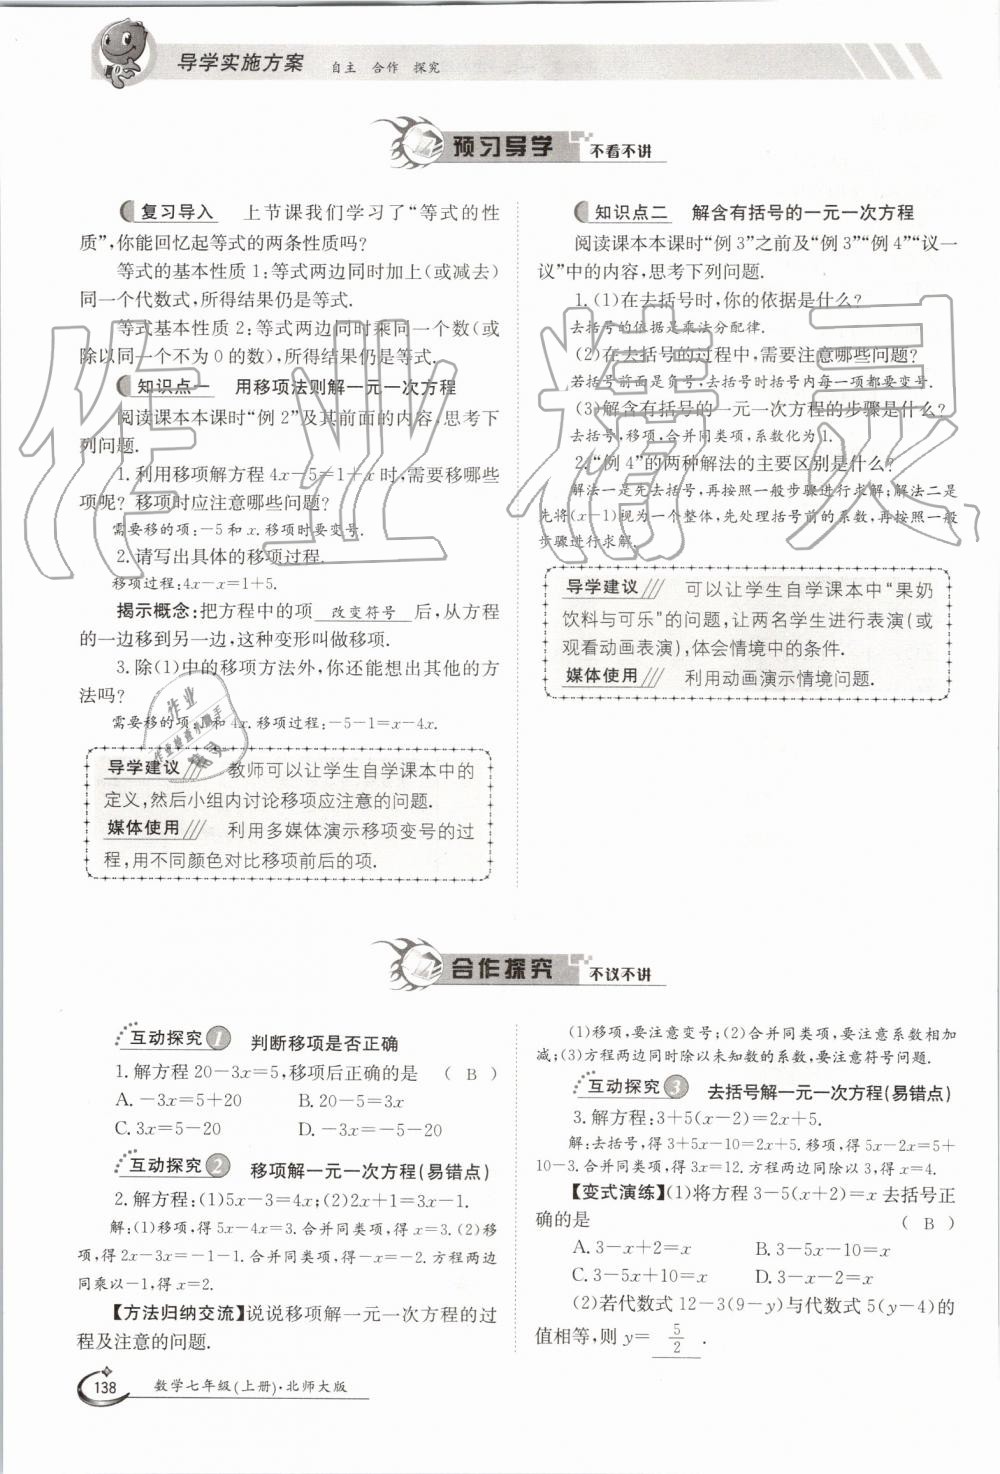 导学实施方案 自主 合作 探究
预习导学 不看不讲
复习导入 上节课我们学习了“等式的性
质”,你能回忆起等式的两条性质吗?
等式的基本性质1:等式两边同时加上(或减去)
同一个代数式,所得结果仍是等式.
等式基本性质2:等式两边同时乘同一个数(或
除以同一个不为0的数),所得结果仍是等式.
知识点一 用移项法则解一元一次方程
阅读课本本课时“例2”及其前面的内容,思考下
列问题.
1.利用移项解方程4x-5=1+x时,需要移哪些
项呢?移项时应注意哪些问题?
需要移的项:-5和x.移项时要变号.
2.请写出具体的移项过程.
移项过程:4x-x=1+5.
揭示概念:把方程中的项 改变符号 后,从方程
的一边移到另一边,这种变形叫做移项.
3.除(1)中的移项方法外,你还能想出其他的方
法吗?
需要移的项:1和4x.移项过程:-5-1=x-4x.
导学建议 教师可以让学生自学课本中的
定义,然后小组内讨论移项应注意的问题.
媒体使用 利用多媒体演示移项变号的过
程,用不同颜色对比移项前后的项.
知识点二 解含有括号的一元一次方程
阅读课本本课时“例3”之前及“例3”“例4”“议一
议”中的内容,思考下列问题.
1.(1)在去括号时,你的依据是什么?
去括号的依据是乘法分配律.
(2)在去括号的过程中,需要注意哪些问题?
若括号前面是负号,去括号时括号内每一项都要变号.
(3)解含有括号的一元一次方程的步骤是什么?
去括号,移项,合并同类项,系数化为1.
2.“例4”的两种解法的主要区别是什么?
解法一是先去括号,再按照一般步骤进行求解;解法二是
先将(x-1)视为一个整体,先处理括号前的系数,再按照一般
步骤进行求解.
导学建议 可以让学生自学课本中“果奶
饮料与可乐”的问题,让两名学生进行表演(或
观看动画表演),体会情境中的条件.
媒体使用 利用动画演示情境问题.
作业精灵
作业
作业检查小助手
精灵
合作探究 不议不讲
互动探究1 判断移项是否正确
1.解方程20-3x=5,移项后正确的是 ( B )
A.-3x=5+20 B.20-5=3x
C.3x=5-20 D.-3x=-5-20
互动探究2 移项解一元一次方程(易错点)
2.解方程:(1)5x-3=4x;(2)2x+1=3x-1.
解:(1)移项,得5x-4x=3.合并同类项,得x=3.(2)移
项,得2x-3x=-1-1.合并同类项,得-x=-2.方程两边
同乘以-1,得x=2.
【方法归纳交流】说说移项解一元一次方程的过
程及注意的问题.
(1)移项,要注意变号;(2)合并同类项,要注意系数相加
减;(3)方程两边同时除以未知数的系数,要注意符号问题.
互动探究3 去括号解一元一次方程(易错点)
3.解方程:3+5(x-2)=2x+5.
解:去括号,得3+5x-10=2x+5.移项,得5x-2x=5+
10-3.合并同类项,得3x=12.方程两边同除以3,得x=4.
【变式演练】(1)将方程3-5(x+2)=x去括号正
确的是 ( B )
A.3-x+2=x B.3-5x-10=x
C.3-5x+10=x D.3-x-2=x
(2)若代数式12-3(9-y)与代数式5(y-4)的
值相等,则y= 5/2 .
138 数学七年级(上册)·北师大版